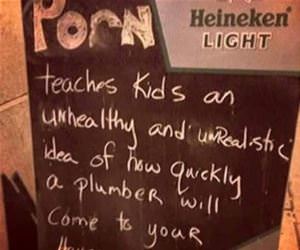 PORN
Heineken
LIGHT
teaches kids an
unhealthy and unRealistic
idea of how quickly
a plumber will
Come to your